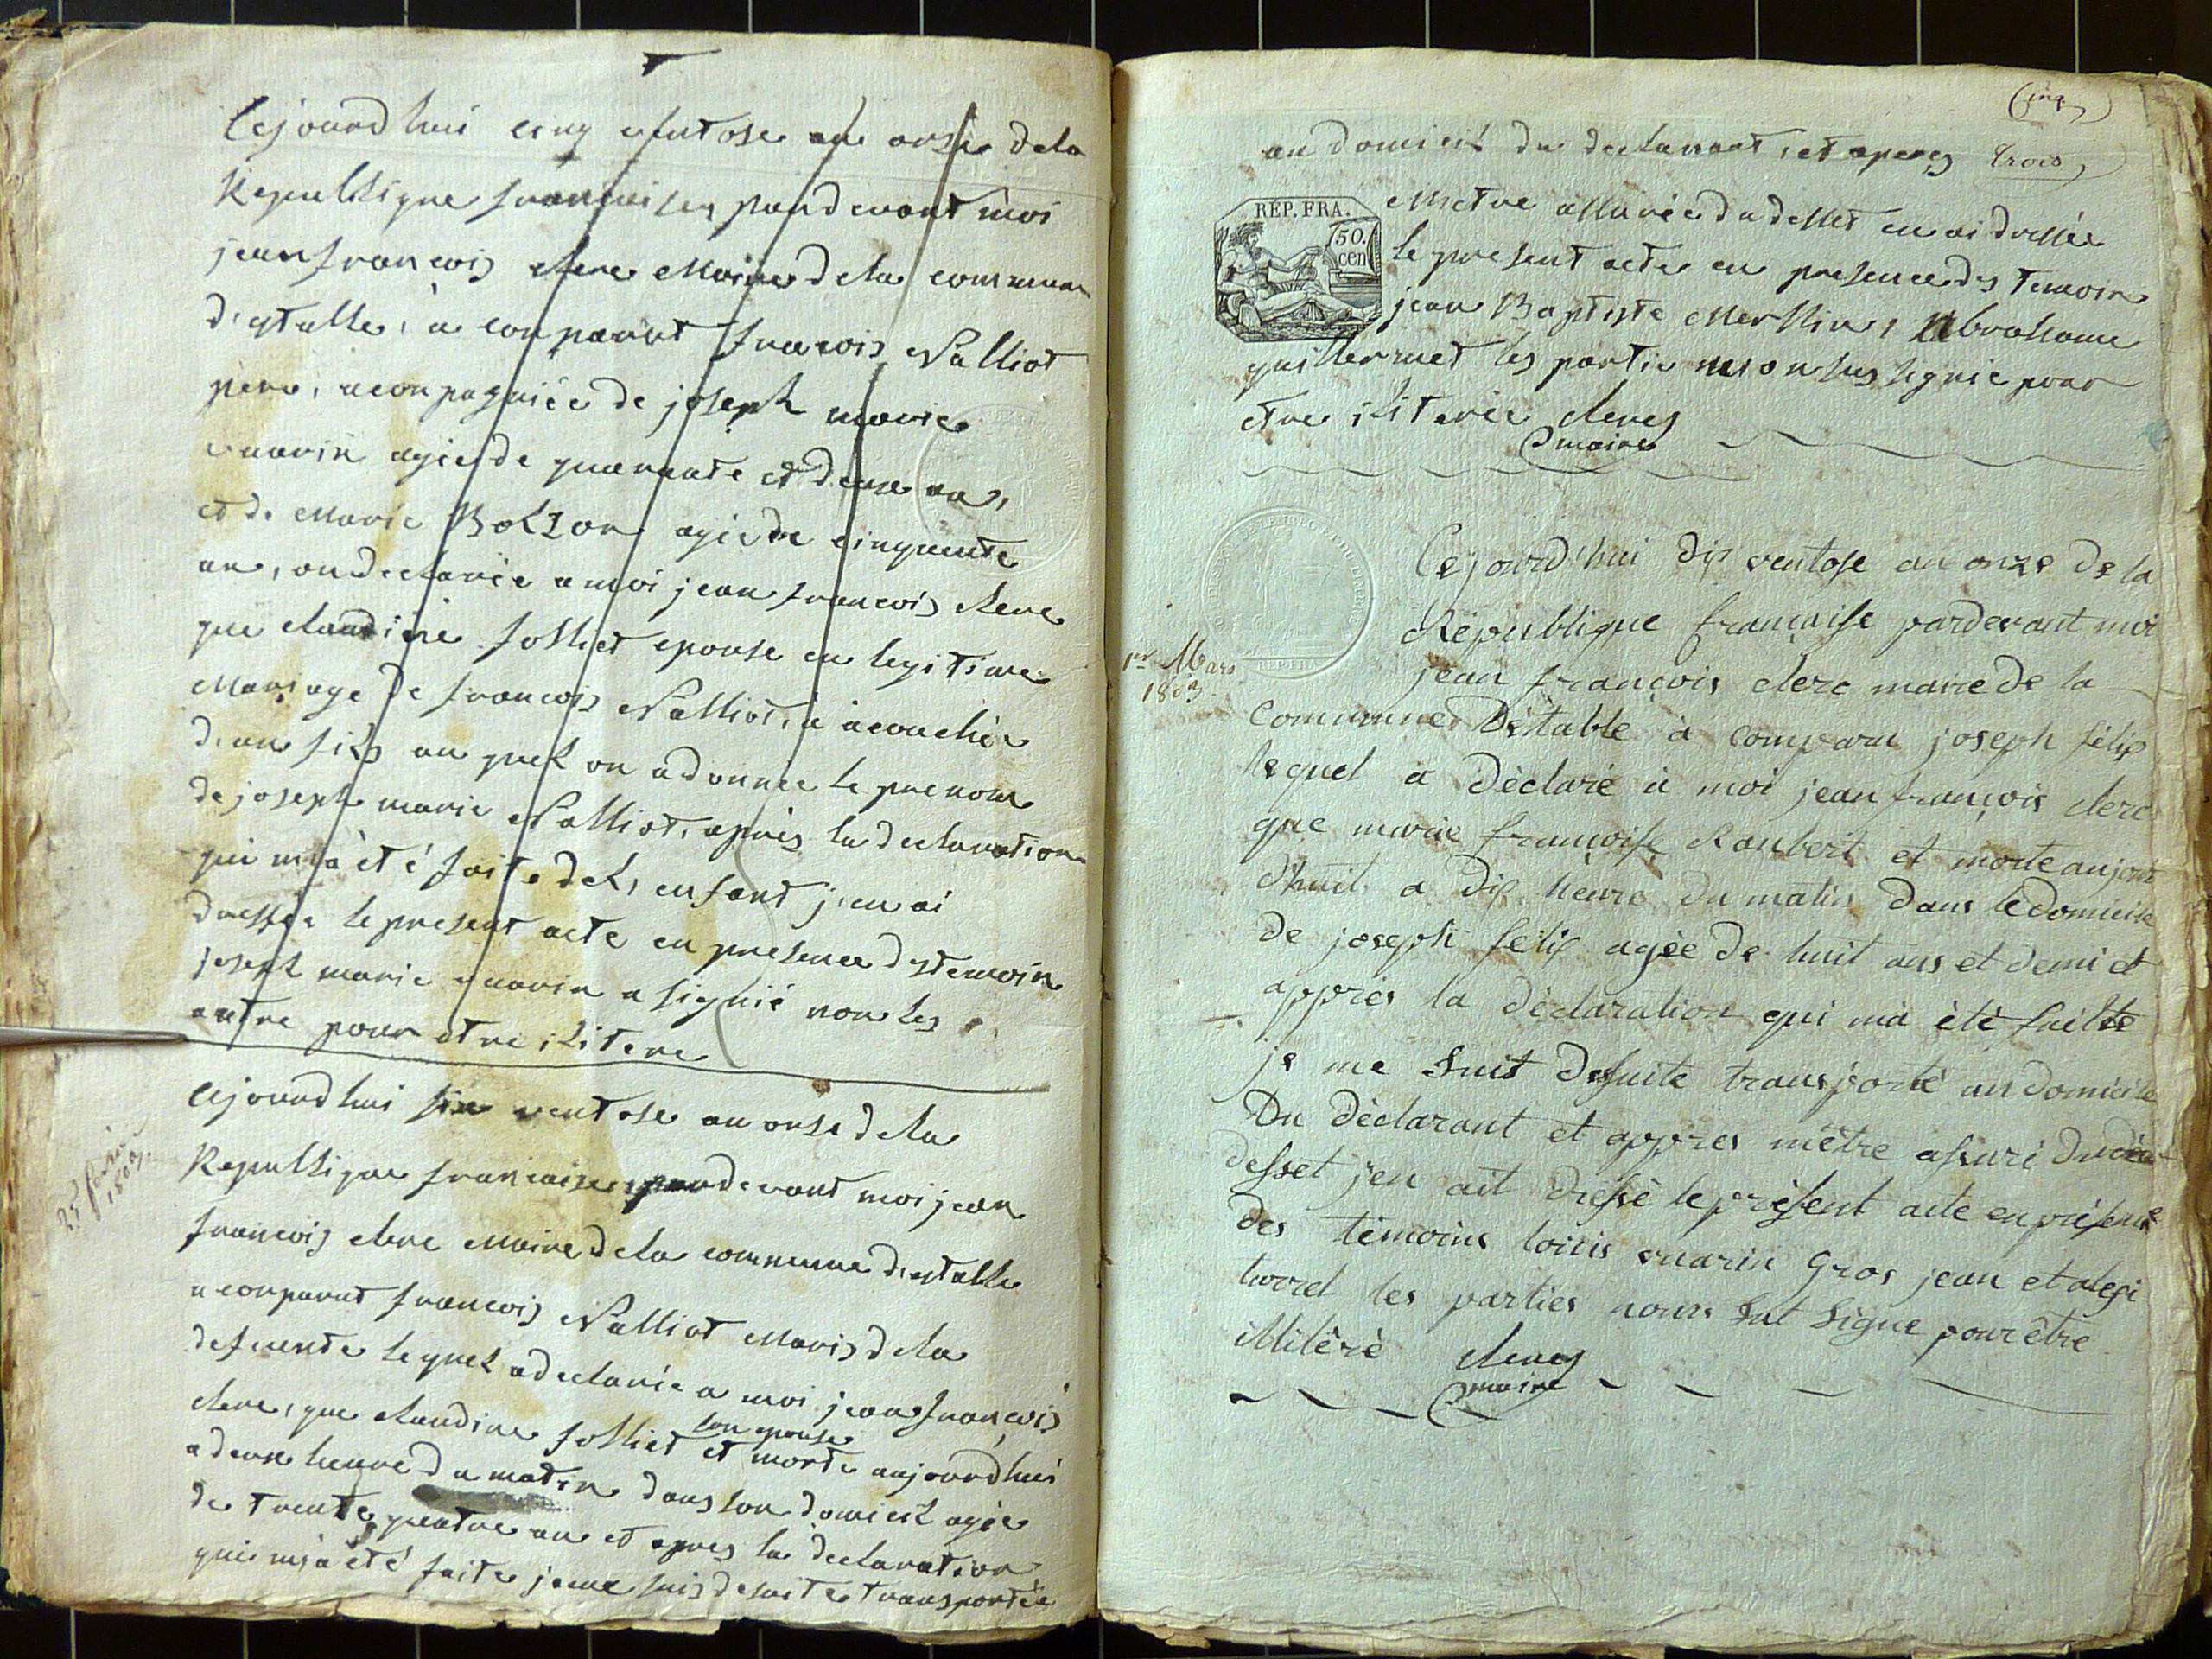 Cejourd hui cinq ventose an onse dela
Republique francaises pard evant moi
jean francois clerc Maire dela commune
d'etable, à conparut francois Nalliot
pere, aconpagniée de joseph marie
vuarin agie de quarante et deux ans,
et de Marie Bolzon agie de cinquente
an, on declarée a moi jean francois clerc
que claudine folliet epouse en legitime
Mariage de francois Nalliot, à acouchée
d'un fils au quel on a donnee le prenom
de joseph marie Nalliot, après la declaration
qui m'à été faite del, enfant j'en ai
dressee le present acte en presence des temoin
joseph marie vuarin a signié non les
autre pour etre ilitere
Cejourd hui six ventose an onse dela
Republique francaises pardevant moi jean
francois clerc Maire dela commune d'etable
a conparut francois Nalliot Maris dela
defuente lequel a declarée a moi jean francois
clerc, que claudine folliet et morte aujourdhui
son epouse
a deux heure du matin dans son domicil agée
de trente quatre an et apres la declaration
qui m'à été faite je me suis de suite transportée
25 février
1803.
(cinq)
au domicil du declarant, et aperes trois
REP. FRA.
50.
cen
Metre assurée du desset en ai dressée
le present acte en presence des temoin
jean Baptiste Merllin, Abrahame
guillermet les partie non sus signie pour
etre iliterée clercs
maire
Cejourd'hui dix ventose an onze de la
République française pardevant moi
jean françois clerc maire de la
1er Mars
1803.
commune Détable à comparu joseph félix
lequel a déclaré à moi jean françois clerc
que marie françoise Raubert et morte aujour
d'huit a dix heure du matin dans le domicile
de joseph félix agée de huit ans et demi et
apprès la déclaration qui mà été faitte
je me suit desuite transporté au domicile
Du déclarant et apprès mêtre assuré du dé
desset jen ait dressé le présent acte en présence
des témoins loüis vuarin Gros jean et alexi
les parties nons sut signe pour être
illitéré clercs
maire